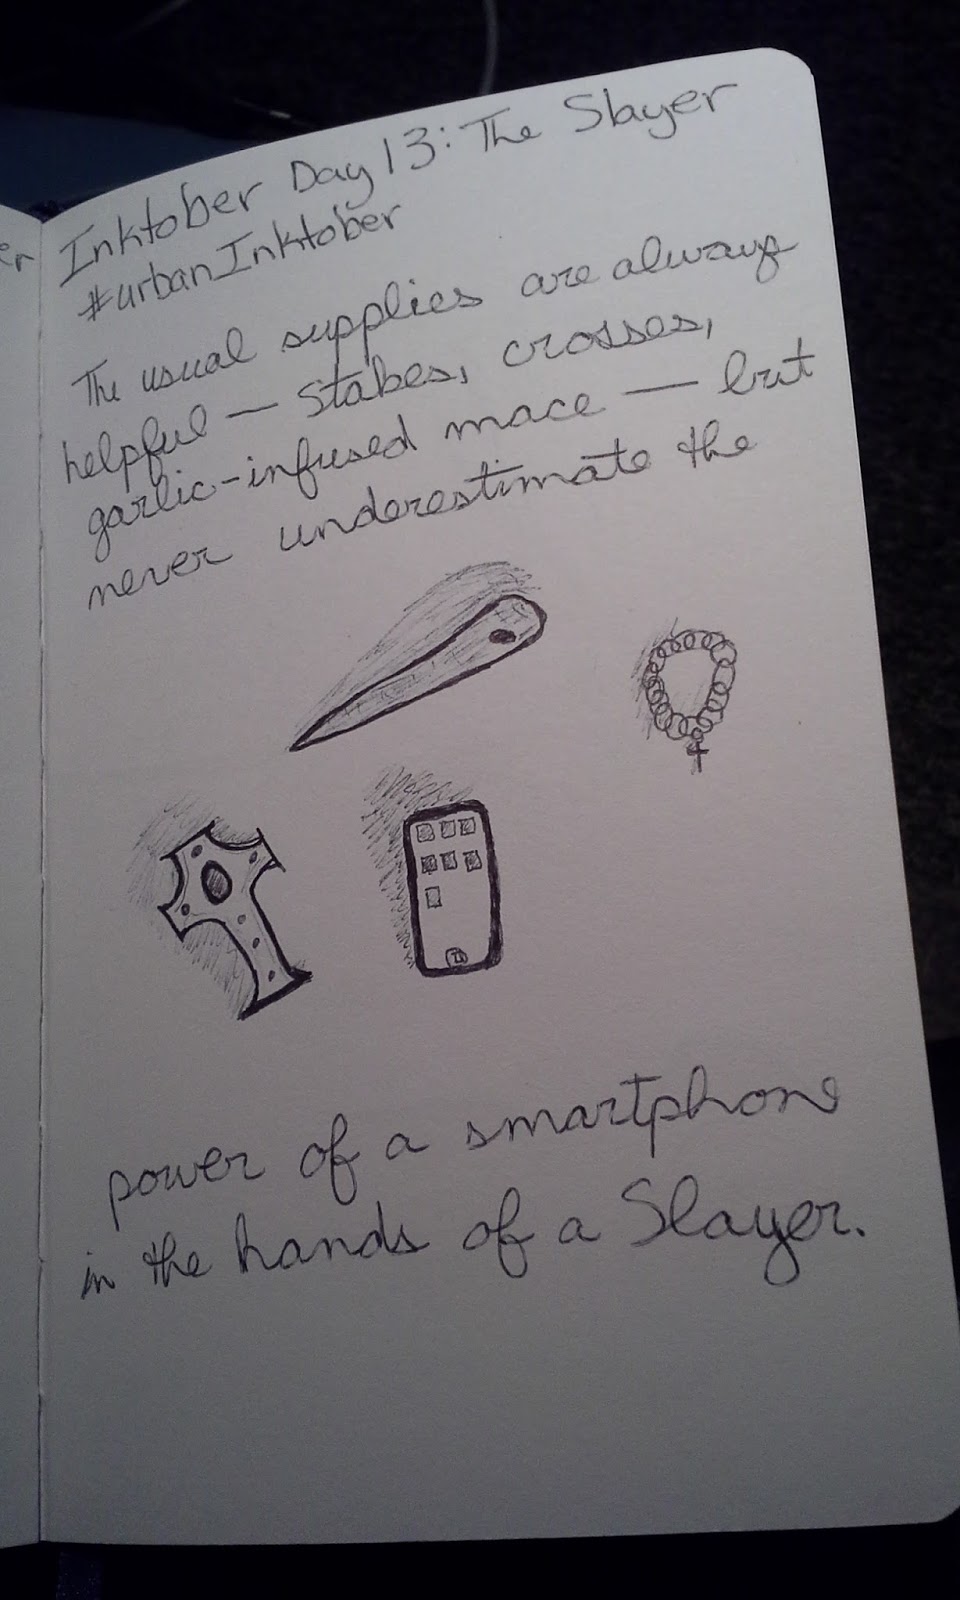 er
Inktober Day 13: The Slayer
#urbanInktober
The usual supplies are always
helpful — stakes, crosses,
garlic-infused mace — but
never underestimate the
power of a smartphone
in the hands of a Slayer.